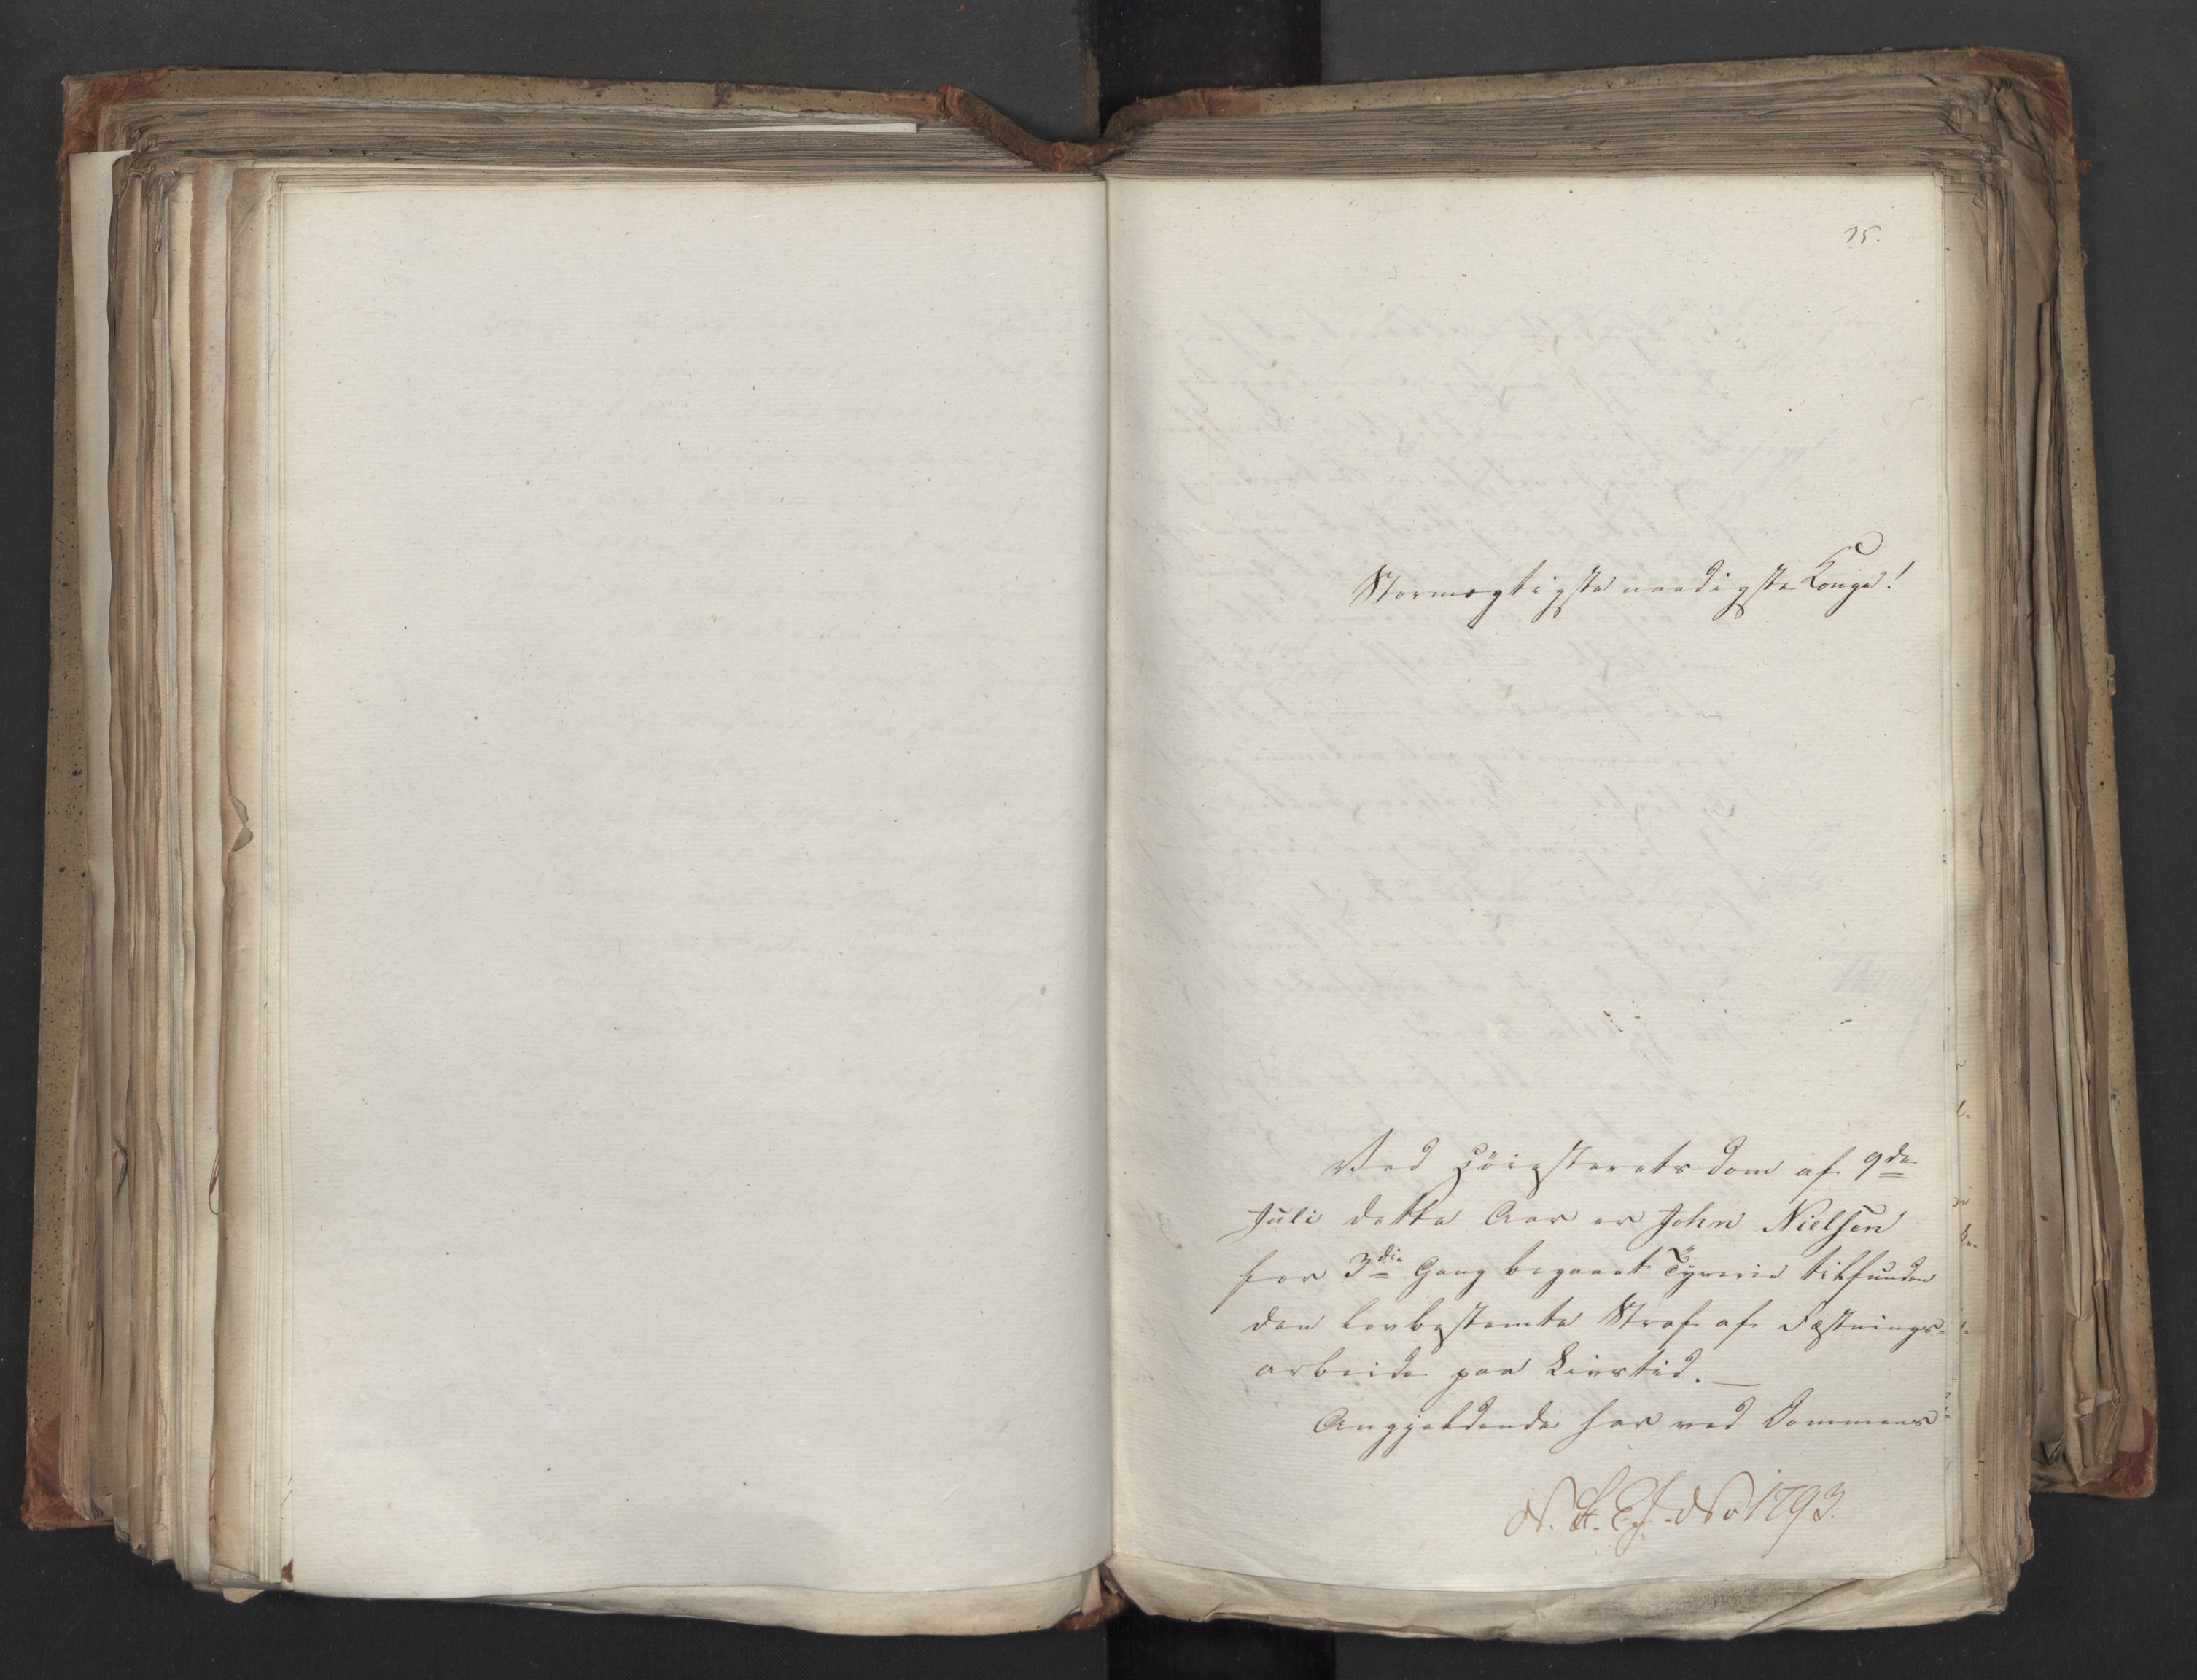 15.
Stormægtigste naadigste Konge!
Ved Høiesterets Dom af 9de
Juli dette Aar er John Nielsen
for 3die Gang begaaet Tyverie tilfunden
den lovbestemte Straf af Fæstnings-
arbeide paa Livstid. —
Angjeldende har ved Dommens
No 1793.